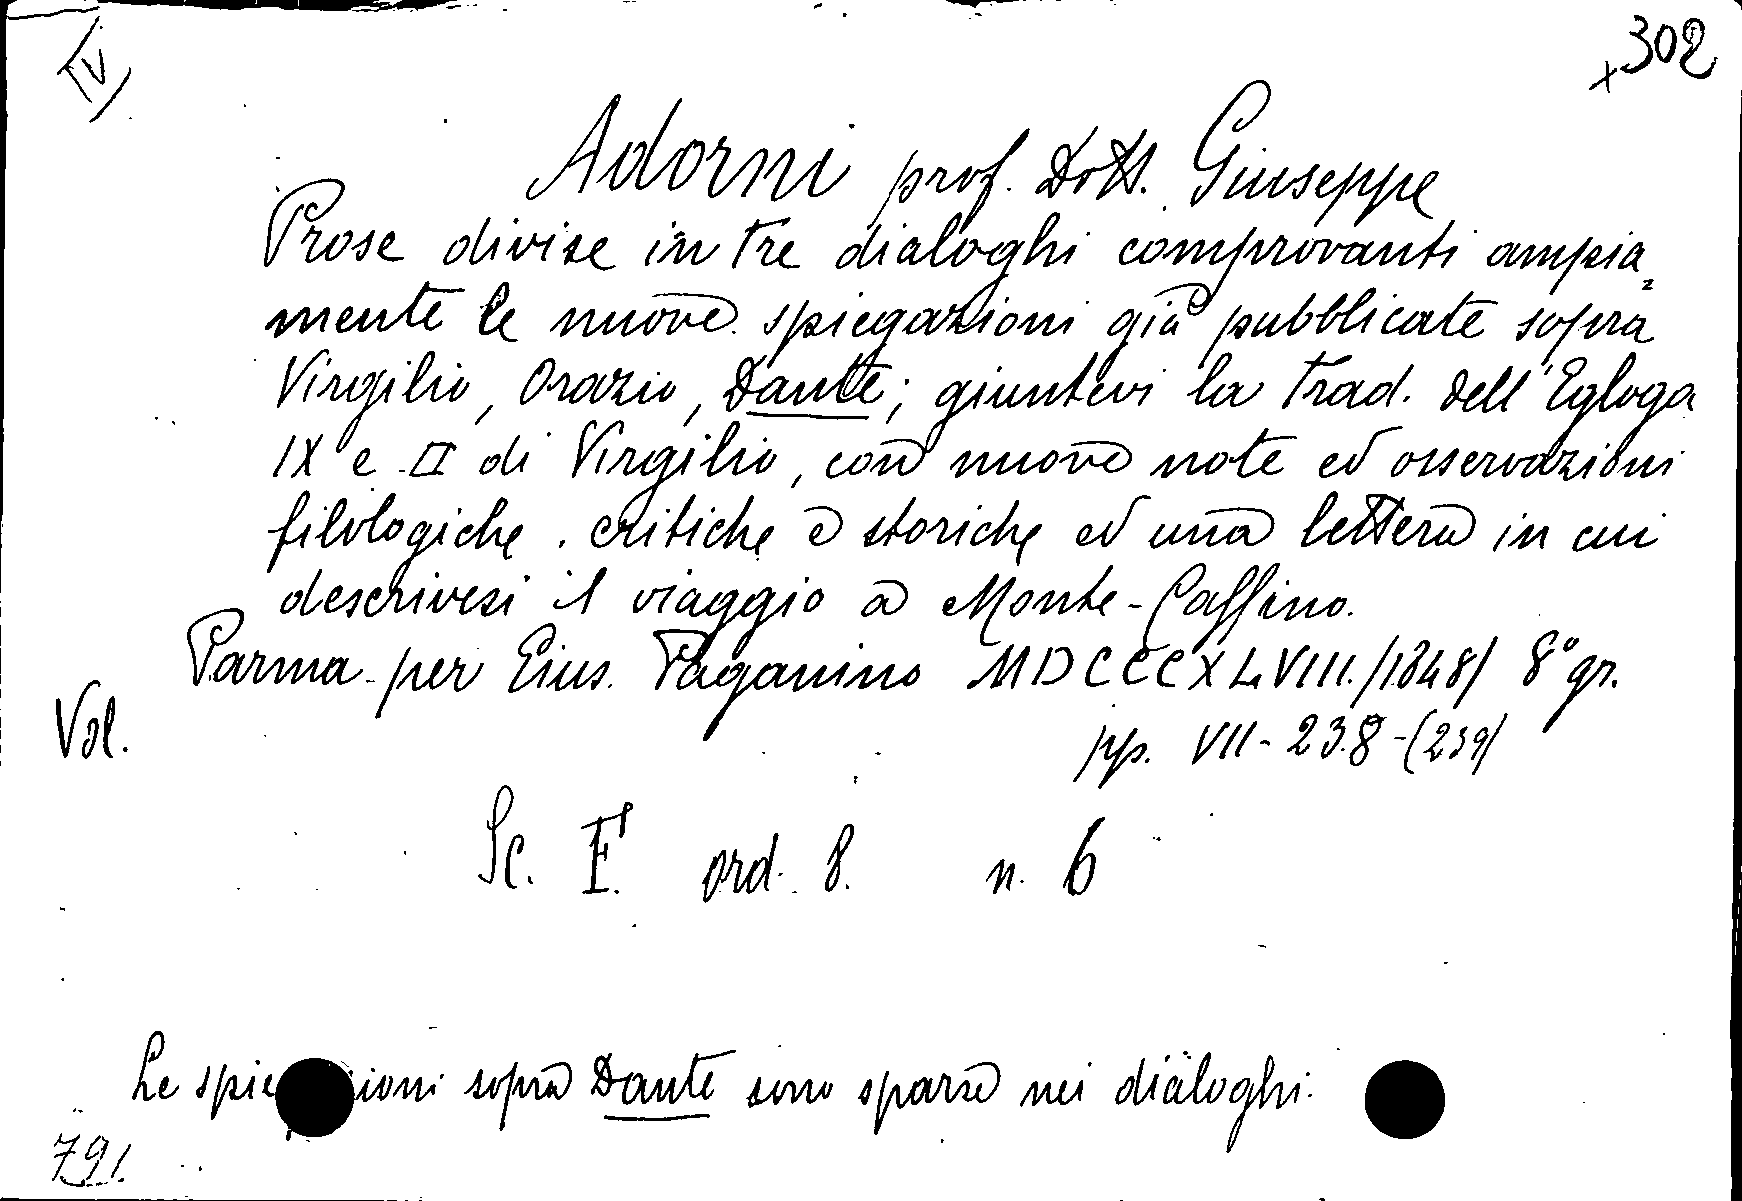 IV
x302
Adorni prof. Dott. Giuseppe
Prose divise in tre dialoghi comprovanti ampia=
mente le nuove spiegazioni già pubblicate sopra
Virgilio, Orazio, Dante; giuntevi la trad. dell'Egloga
IX e II di Virgilio, con nuove note ed osservazioni
filologiche. critiche e storiche ed una lettera in cui
descrivesi il viaggio a Monte-Cassino.
Parma per Gius. Paganino MDCCCXLVIII. (1848) 8° gr.
Vol.
pp. VII-238-(239)
Sc. F¹. ord. 8. n. 6
Le spie ioni sopra Dante sono sparse nei dialoghi.
791.